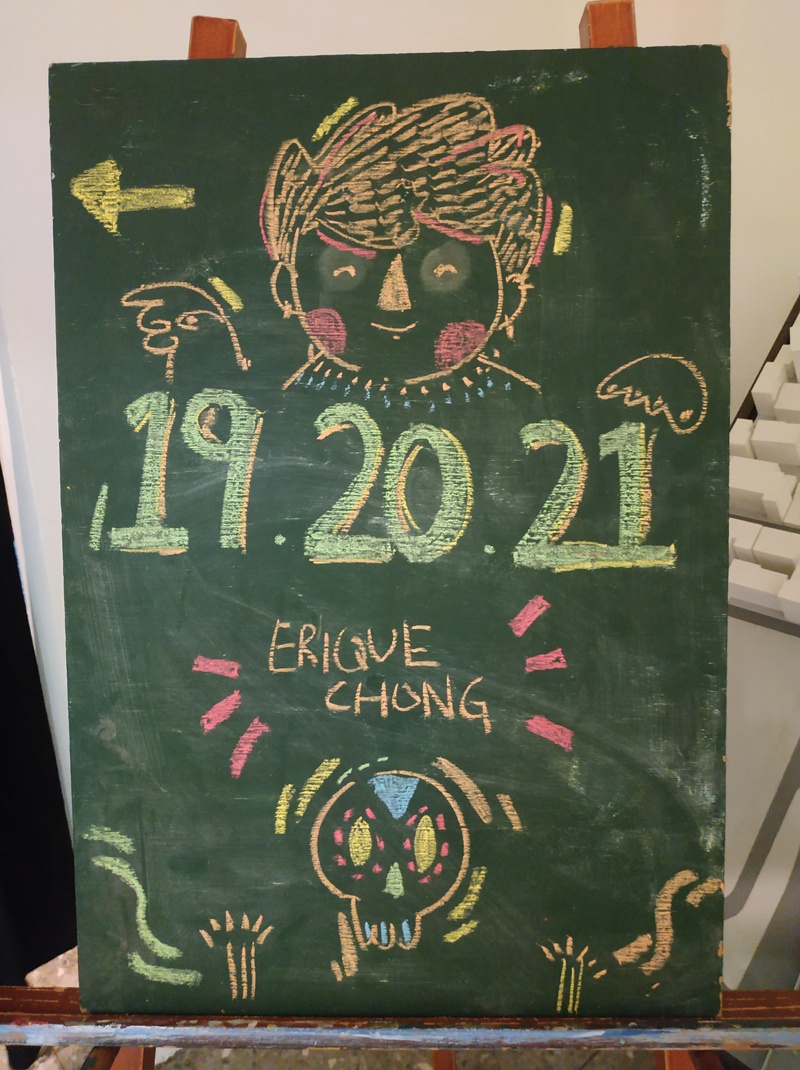 19.20.21
ERIQUE
CHONG